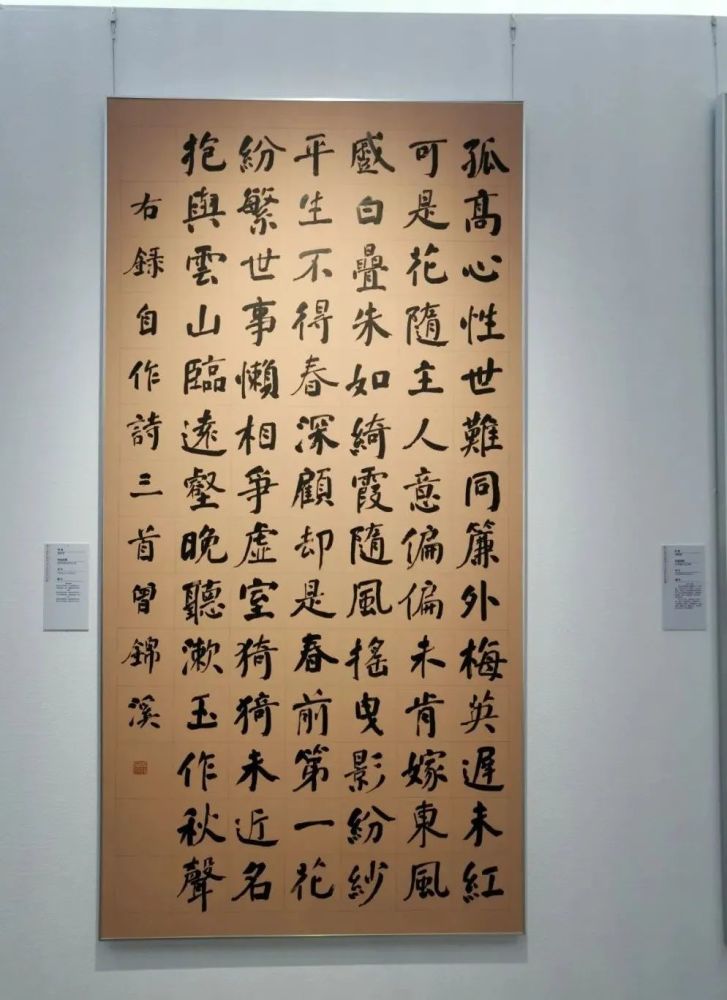 孤高心性世難同簾外梅英遲未紅
可是花隨主人意偏偏未肯嫁東風
白疊朱如綺霞隨風搖曳影紛紗
平生不得春深顧却是春前第一花
紛繁世事懶相爭虛室猗猗未近名
抱與雲山臨遠壑晚聽漱玉作秋聲
右録自作詩三首曾錦溪